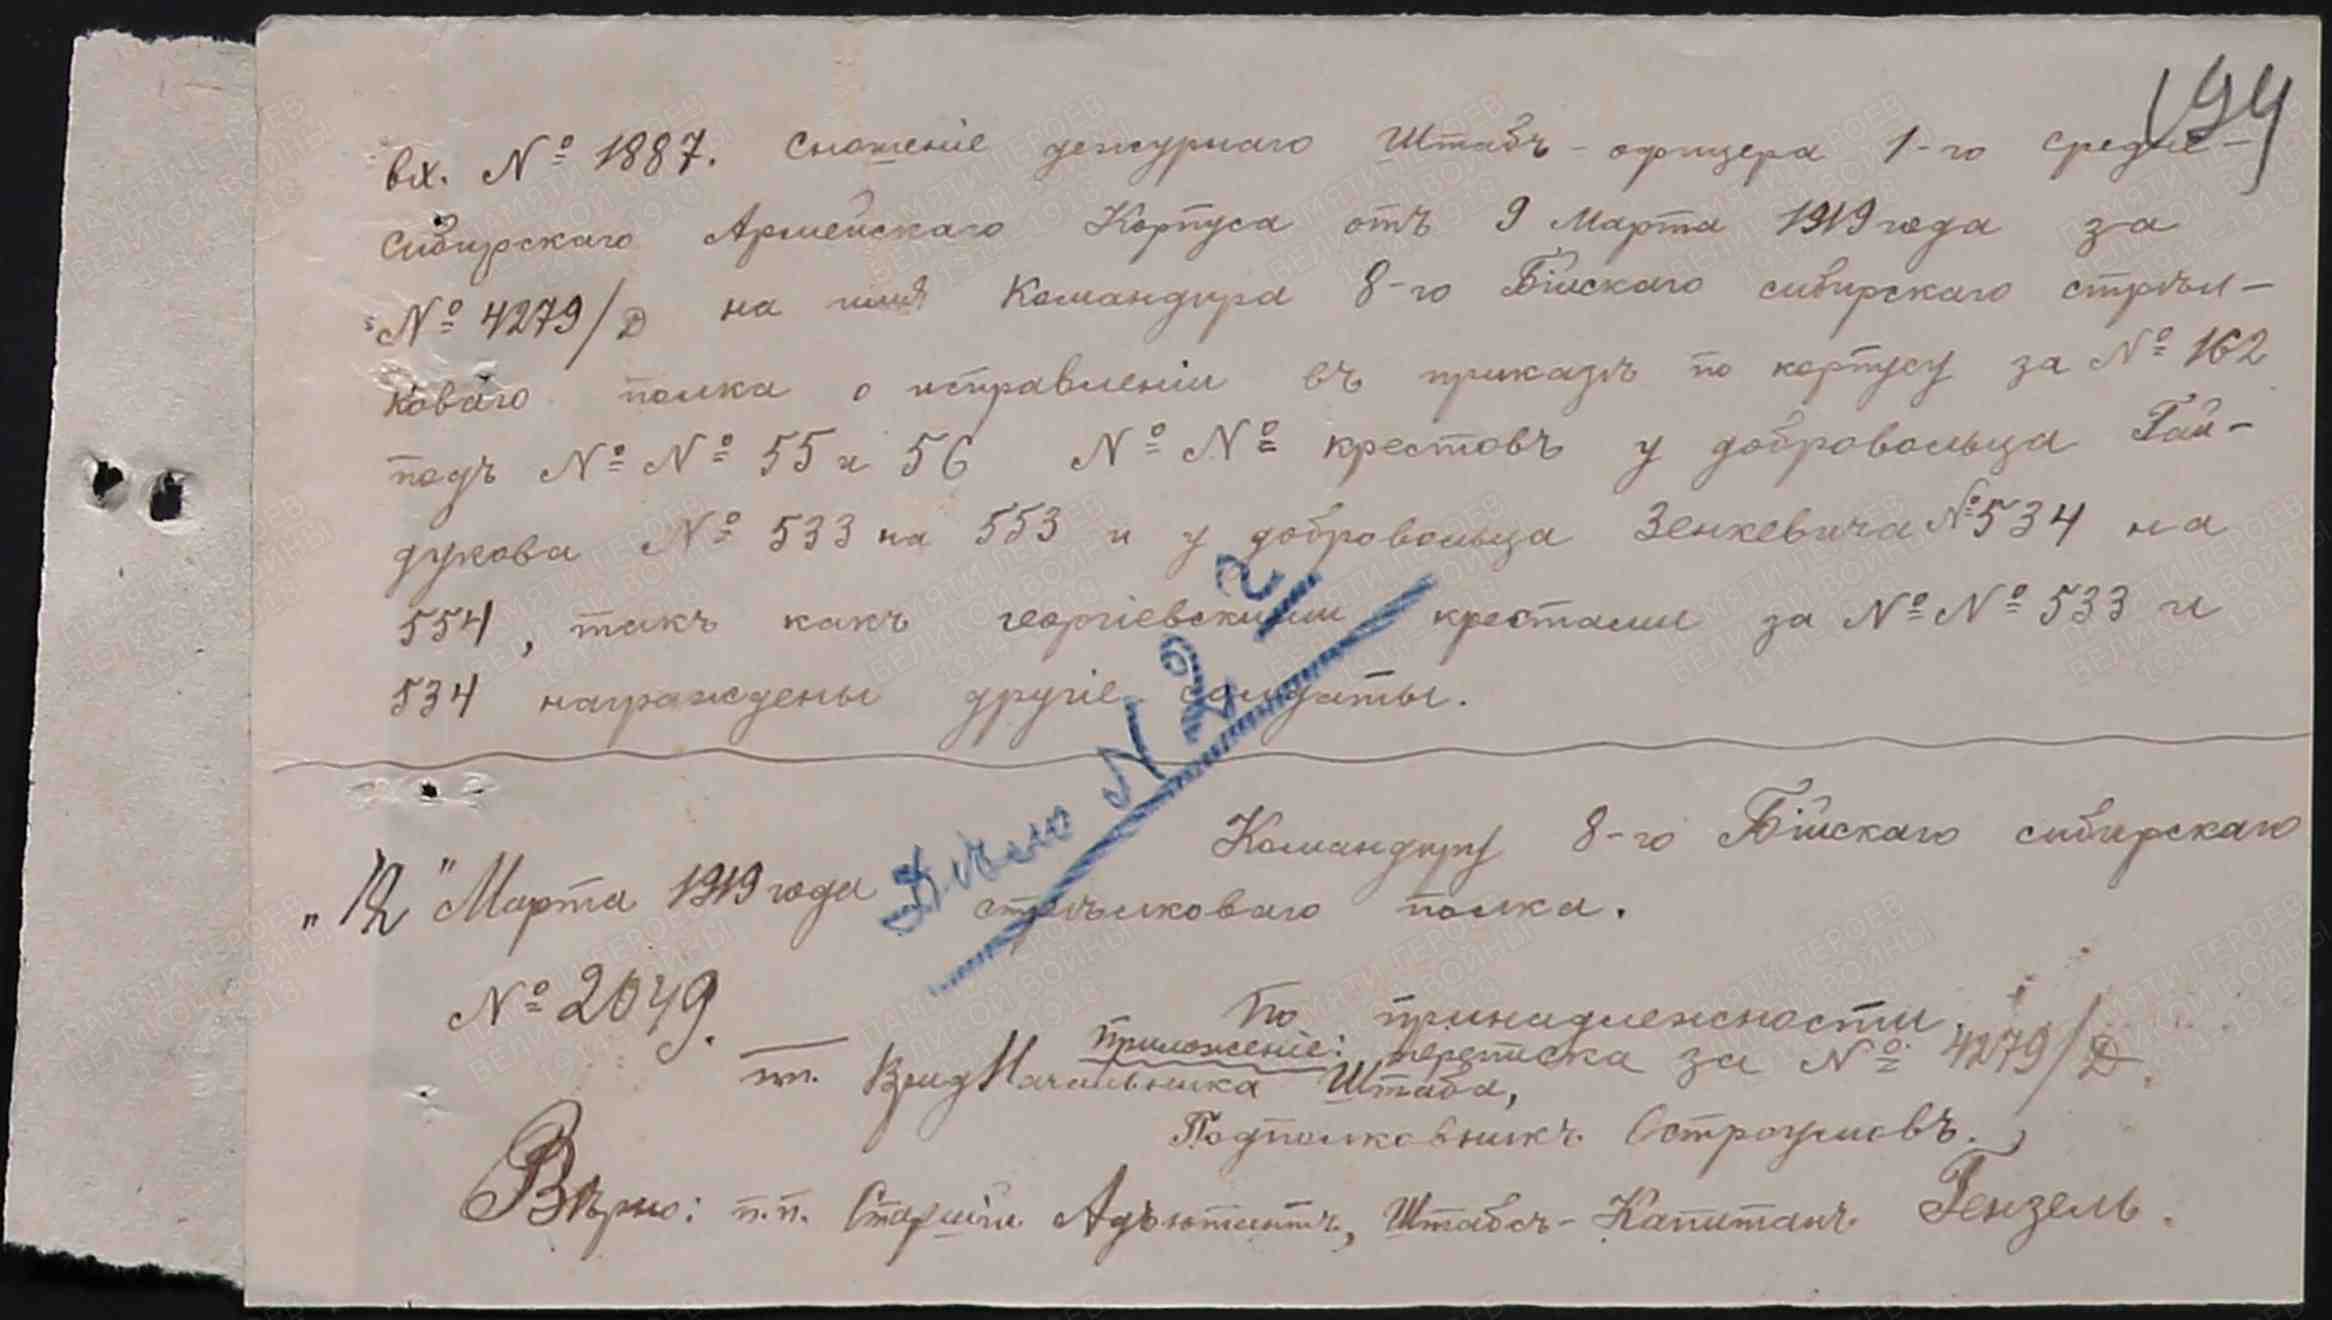 194
вх. № 1887. Сношеніе дежурнаго Штабъ-офицера 1-го Средне-
Сибирскаго Армейскаго Корпуса отъ 9 Марта 1919 года за
№ 4279/D на имя Командира 8-го Бійскаго сибирскаго стрѣл-
коваго полка о исправленіи въ приказѣ по корпусу за № 162
подъ №№ 55 и 56 №№ крестовъ у добровольца Гай-
дукова № 533 на 553 и у добровольца Зенкевича № 534 на
554, такъ какъ георгіевскими крестами за №№ 533 и
534 награждены другіе солдаты.
Дѣло № 22
Командиру 8-го Бійскаго сибирскаго
"12" Марта 1919 года стрѣлковаго полка.
№ 2049.
По принадлежности.
Приложеніе: переписка за № 4279/D.
п.п. Врид Начальника Штаба,
Подполковникъ Остроумовъ.
Вѣрно: п.п. Старшій Адъютантъ, Штабсъ-Капитанъ Гензель.